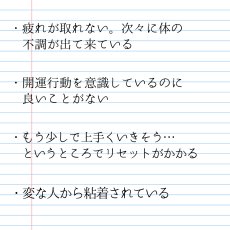 ・疲れが取れない。次々に体の
不調が出て来ている
・開運行動を意識しているのに
良いことがない
・もう少しで上手くいきそう…
というところでリセットがかかる
・変な人から粘着されている